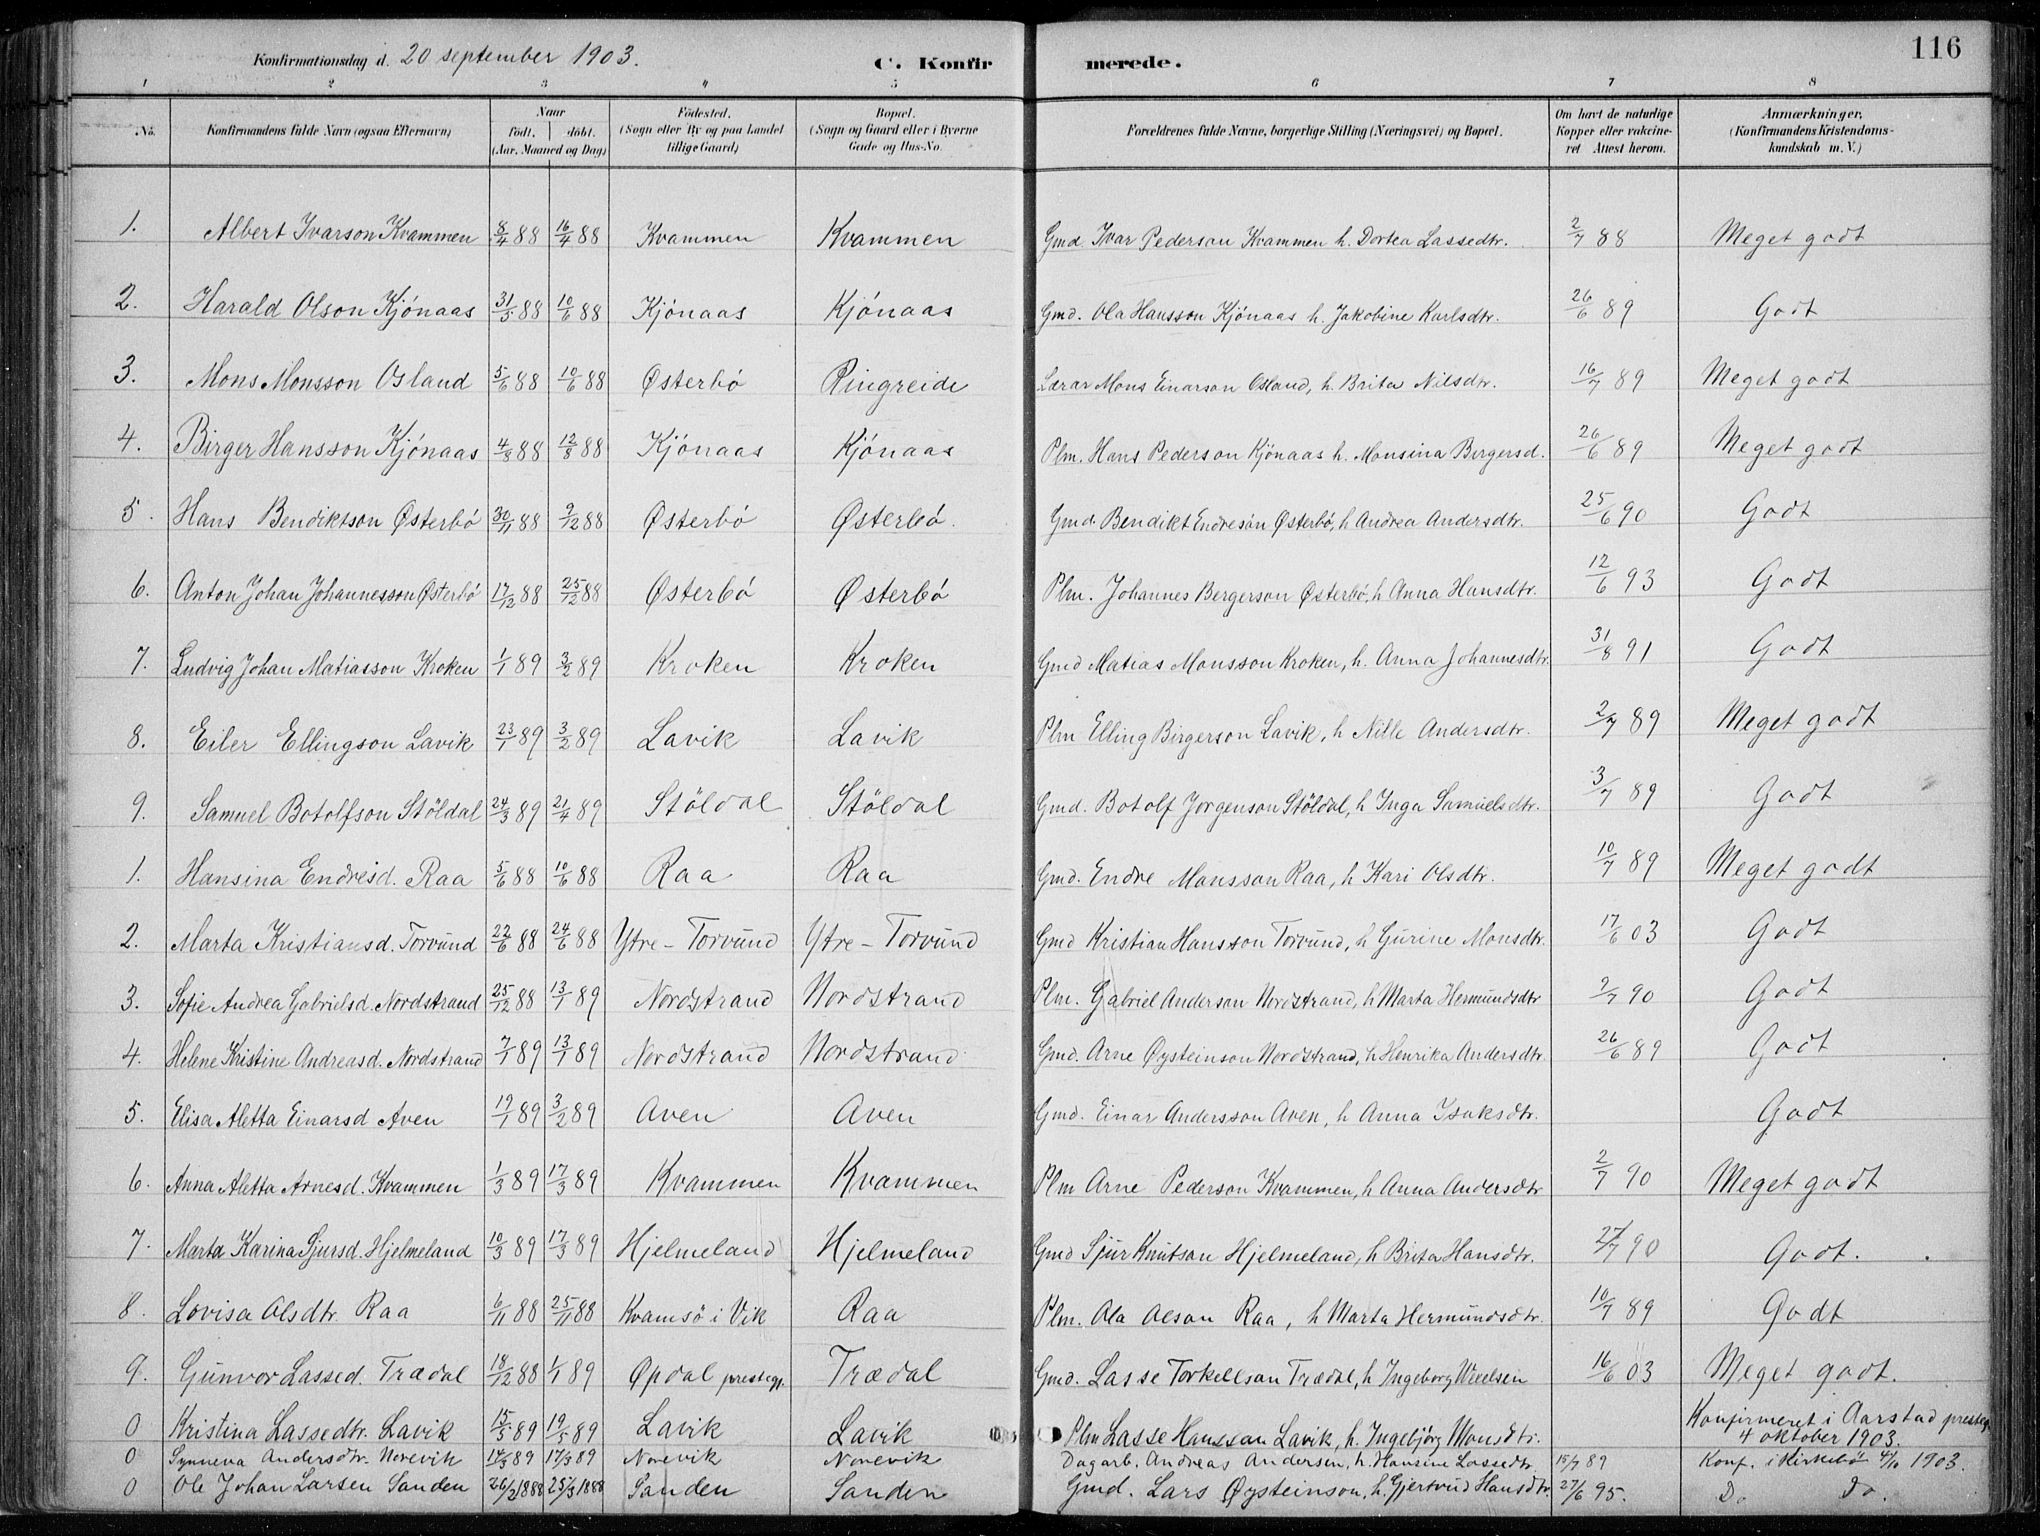 Konfirmationsdag d. 20 september 1903.
C. Konfirmerede.
116
1 2 3 4 5 6 7 8
No. Konfirmandens fulde Navn (ogsaa Efternavn) Naar født. døbt. (Aar, Maaned og Dag) Fødested. (Sogn eller By og paa Landet tillige Gaard) Bopæl. (Sogn og Gaard eller i Byerne Gade og Hus-No. Forældrenes fulde Navne, borgerlige Stilling (Næringsvei) og Bopæl. Om havt de naturlige Kopper eller vakcineret Attest herom. Anmærkninger, (Konfirmandens Kristendomskundskab m. V.)
1. Albert Ivarson Kvammen 8/4 88 16/4 88 Kvammen Kvammen Gmd. Ivar Pederson Kvammen h. Dortea Lassedtr. 2/7 88 Meget godt
2. Harald Olson Kjönaas 31/5 88 10/6 88 Kjönaas Kjönaas Gmd. Ola Hansson Kjönaas h. Jakobine Karlsdtr. 26/6 89 Godt
3. Mons Monsson Osland 5/6 88 10/6 88 Østerbö Ringreide Lærar Mons Einarson Osland, h. Brita Nilsdtr. 16/7 89 Meget godt
4. Birger Hansson Kjönaas 4/8 88 12/8 88 Kjönaas Kjönaas Plm. Hans Pederson Kjönaas h. Monsina Bergersd. 26/6 89 Meget godt
5. Hans Bendiktson Østerbö 30/11 88 9/12 88 Østerbö Østerbö. Gmd. Bendikt Endreson Østerbö, h Andrea Andersdtr. 25/6 90 Godt
6. Anton Johan Johannesson Østerbö 17/12 88 25/12 88 Østerbö Østerbö Plm. Johannes Bergerson Østerbö, h Anna Hansdtr. 12/6 93 Godt
7. Ludvig Johan Matiasson Kroken 1/1 89 3/2 89 Kroken Kroken Gmd Matias Monsson Kroken, h. Anna Johannesdtr. 31/8 91 Godt
8. Eiler Ellingson Lavik 23/1 89 3/2 89 Lavik Lavik Plm Elling Birgerson Lavik, h Nille Andersdtr. 2/7 89 Meget godt
9. Samuel Botolfson Stöldal 24/3 89 21/4 89 Stöldal Stöldal Gmd. Botolf Jorgenson Stöldal, h Inga Samuelsdtr. 3/7 89 Godt
1. Hansina Endresd. Raa 5/6 88 10/6 88 Raa Raa Gmd. Endre Monsson Raa, h Kari Olsdtr. 10/7 89 Meget godt
2. Marta Kristiansd. Torvund 22/6 88 24/6 88 Ytre - Torvund Ytre - Torvund Gmd Kristian Hansson Torvund, h Gurine Monsdtr. 17/6 03 Godt
3. Sofie Andrea Gabrielsd. Nordstrand 25/12 88 13/1 89 Nordstrand Nordstrand Plm. Gabriel Anderson Nordstrand, h Marta Hermundsdtr 2/7 90 Godt
4. Helene Kristine Andreasd. Nordstrand 7/1 89 13/1 89 Nordstrand Nordstrand Gmd. Arne Øysteinson Nordstrand, h Henrika Andersdtr. 26/6 89 Godt
5. Elisa Aletta Einarsd Aven 19/1 89 3/2 89 Aven Aven Gmd. Einar Andersson Aven, h Anna Isaksdtr. Godt
6. Anna Aletta Arnesd. Kvammen 1/3 89 17/3 89 Kvammen Kvammen Plm Arne Pederson Kvammen, h Anna Andersdtr 2/7 90 Meget godt
7. Marta Karina Sjursd. Hjelmeland 10/3 89 17/3 89 Hjelmeland Hjelmeland Gmd Sjur Knutson Hjelmeland, h Brita Hansdtr. 27/7 90 Godt.
8. Lovisa Olsdtr. Raa 6/11 88 25/11 88 Kvamsö i Vik Raa Plm. Ola Olson Raa, h Marta Hermundsdtr. 10/7 89 Godt
9. Gunvor Lassed. Trædal 18/12 88 1/1 89 Øpdal prestegj. Trædal Gmd. Lasse Torkellson Trædal, h Ingeborg Weelsen 16/6 03 Meget godt.
0 Kristina Lassedtr. Lavik 15/5 89 19/5 89 Lavik Lavik Plm Lasse Hansson Lavik, h. Ingebjörg Monsdtr. Konfirmeret i Aarstad presteg. 4 oktober 1903.
0 Synneva Andersdtr. Norevik 14/3 89 17/3 89 Norevik Norevik Dagarb. Andreas Andersen, h. Hansine Lassedtr. 15/7 89 Konf. i Kirkebö 4/10 1903.
0 Ole Johan Larsen Sanden 26/2 1888 25/3 1888 Sanden Sanden Gmd. Lars Øysteinson, h. Gjertrud Hansdtr. 27/6 95. Do Do.